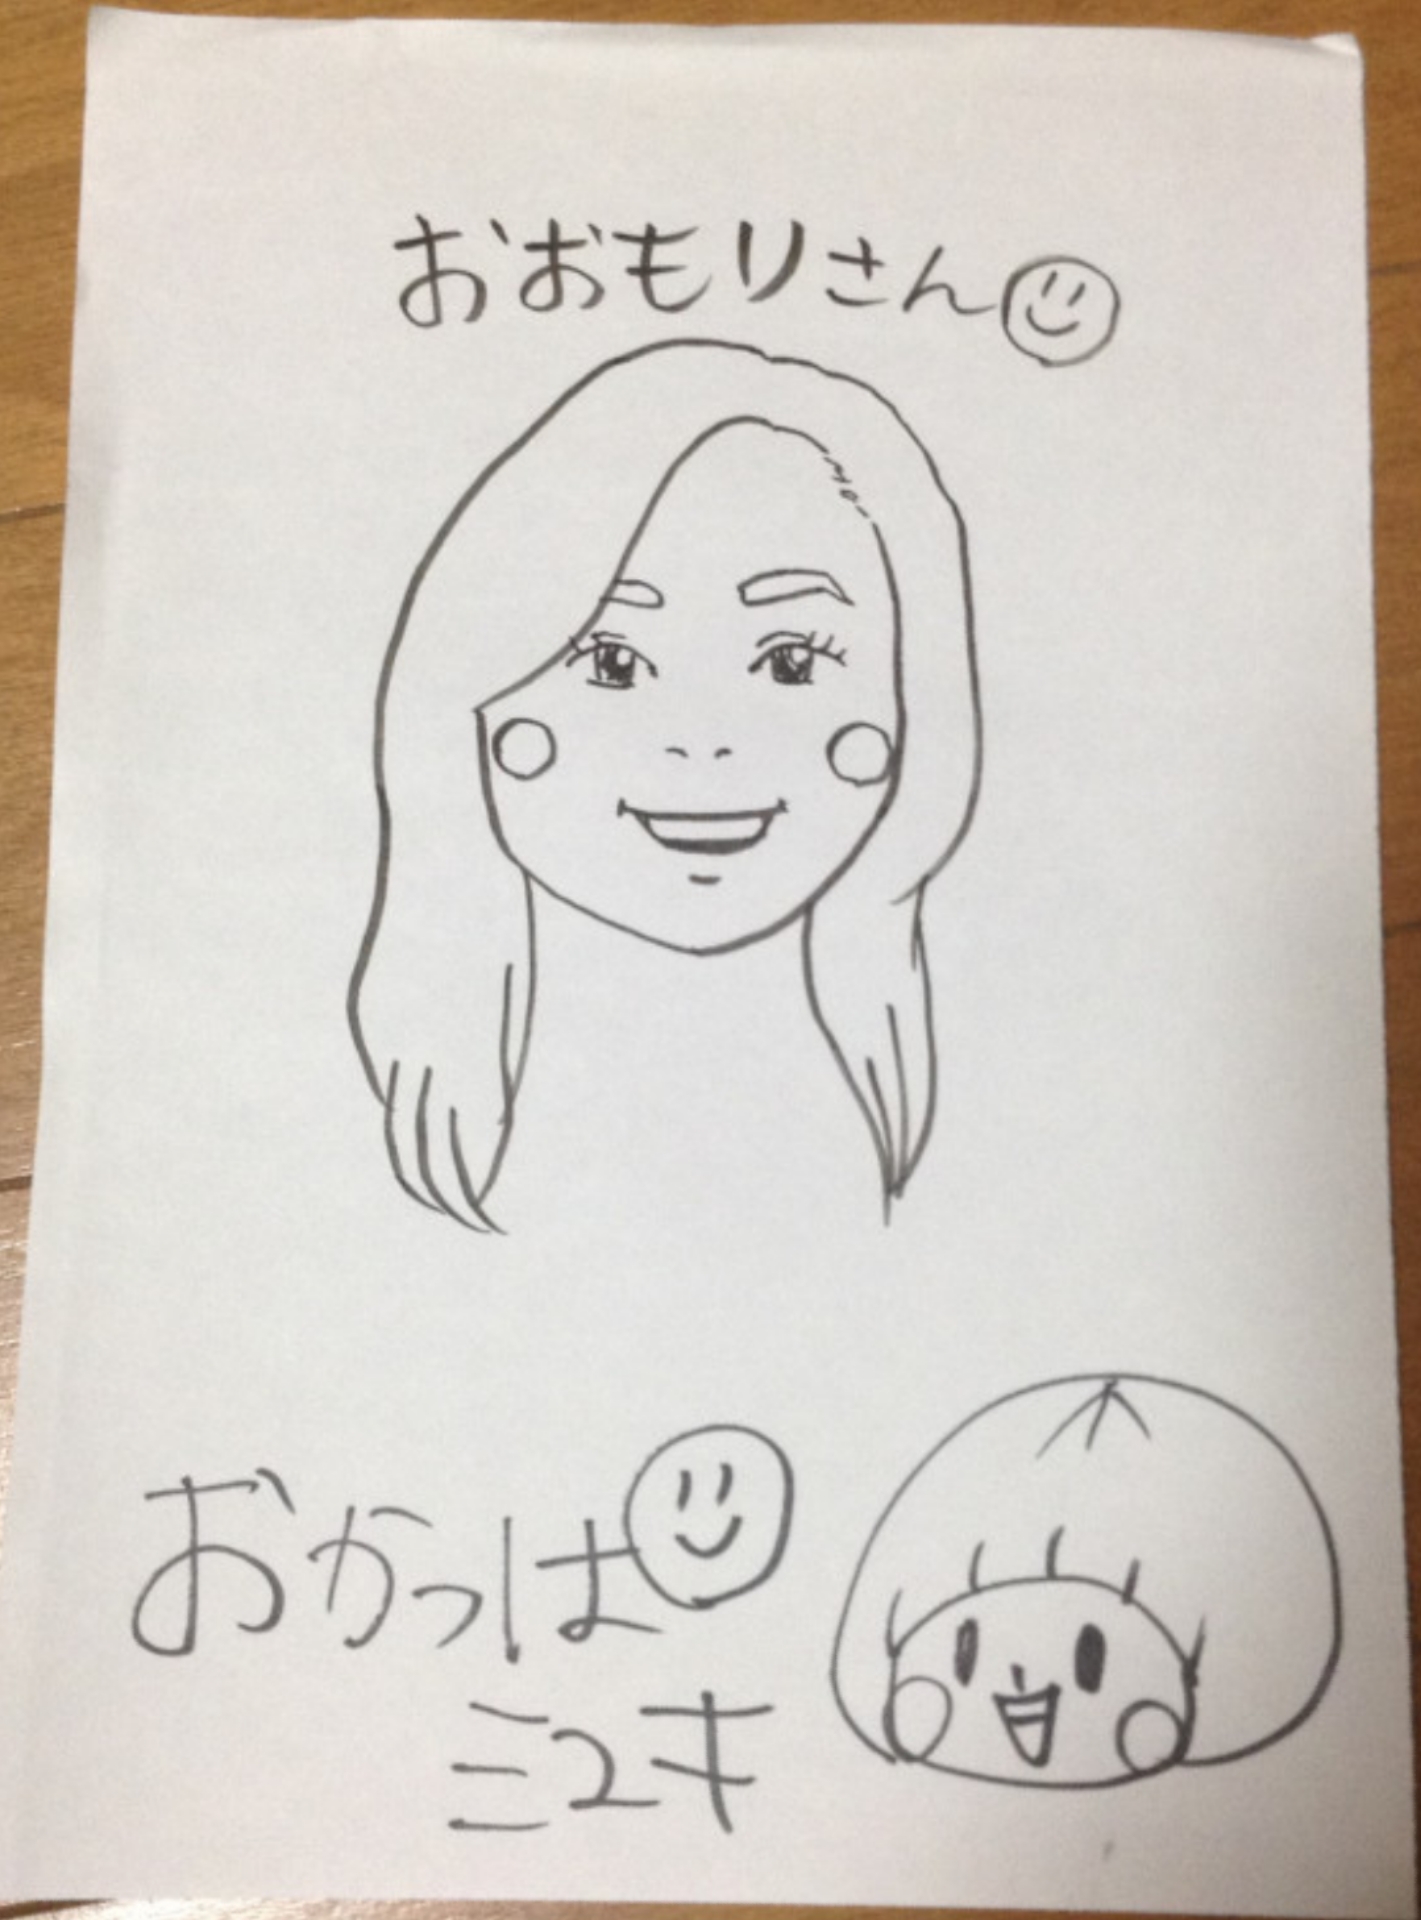 おおもりさん
おかっぱ
ミユキ